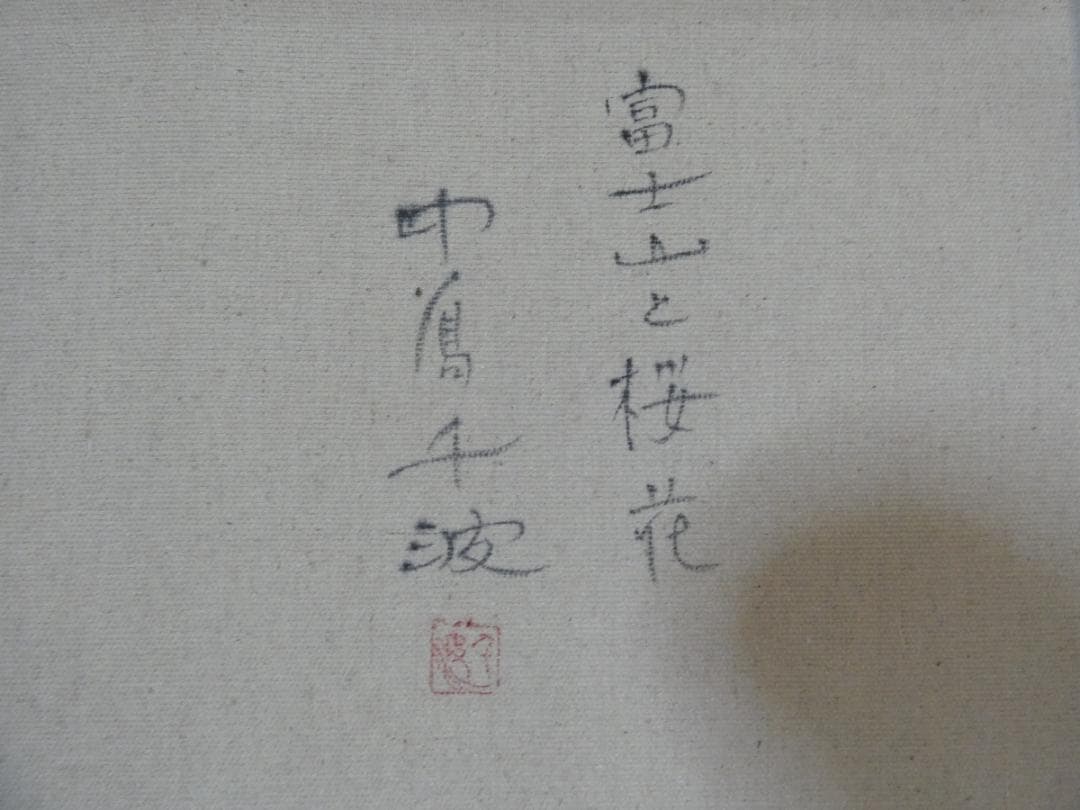 富士山と桜花
中島千波